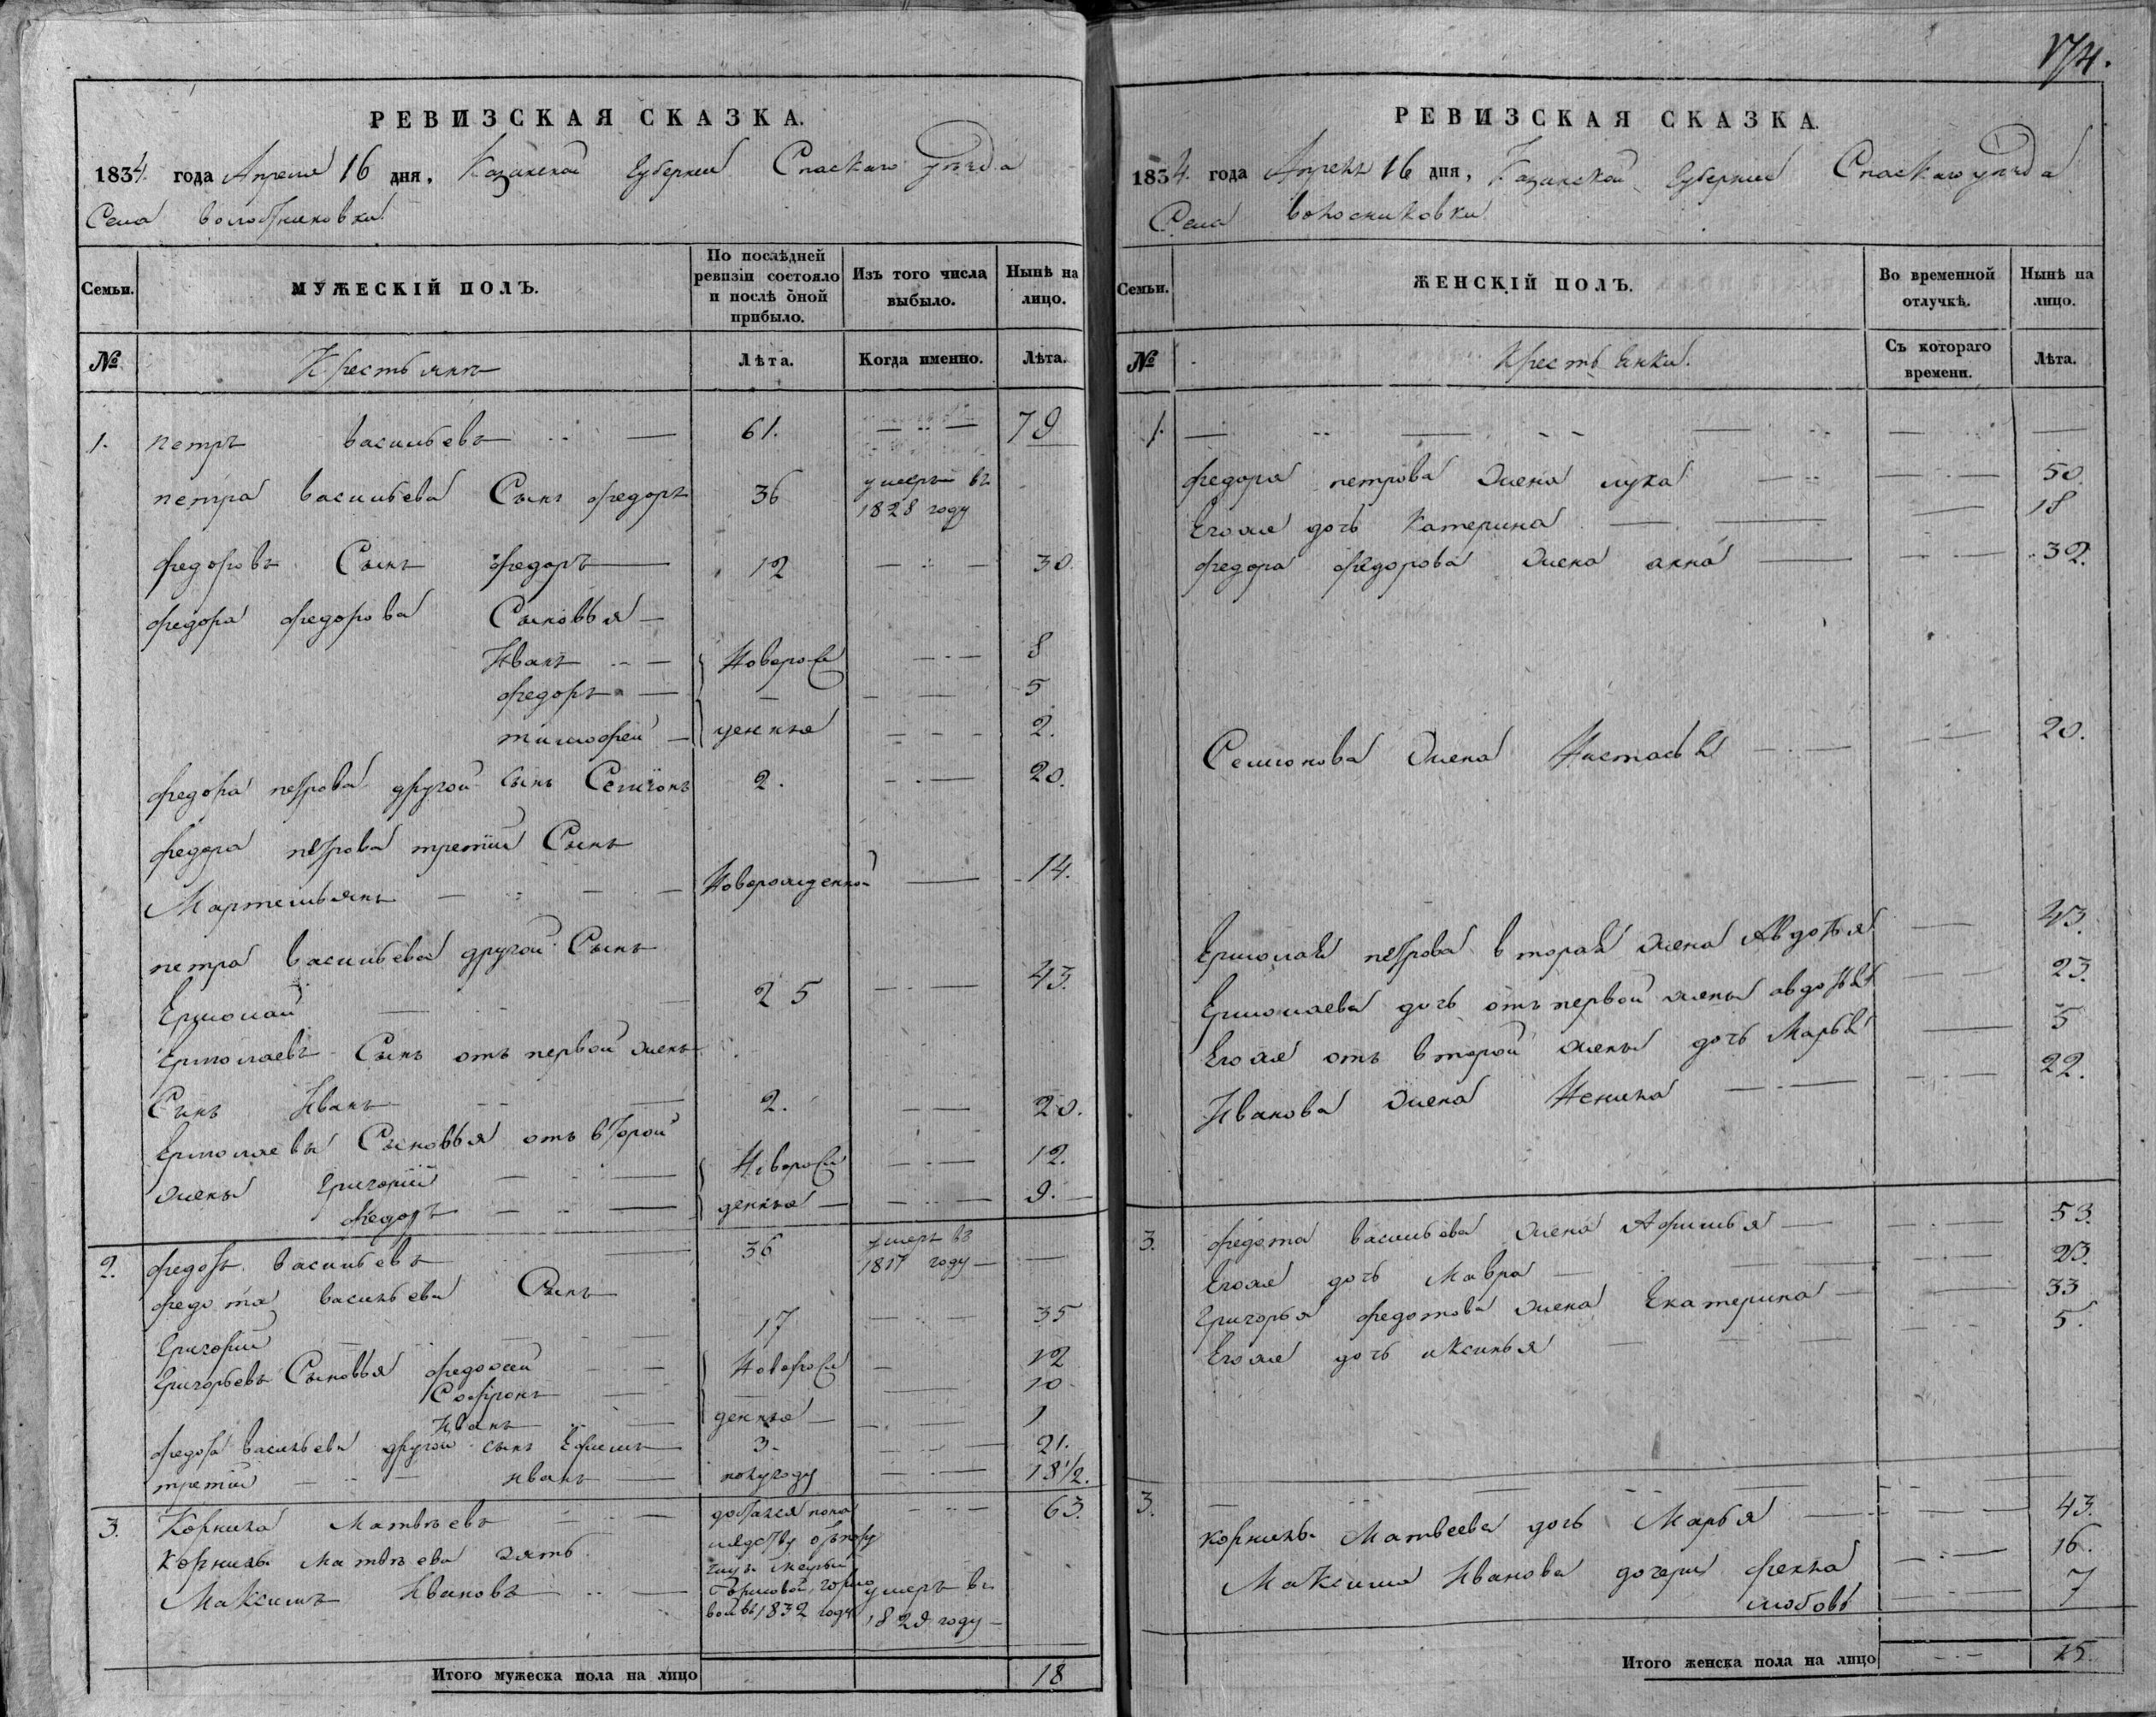 РЕВИЗСКАЯ СКАЗКА.
1834. года Апреля 16 дня, Казанской Губернии Спаскаго уезда
Села волостниковки
Семьи.
МУЖЕСКІЙ ПОЛЪ.
По послѣдней ревизіи состояло и послѣ оной прибыло.
Изъ того числа выбыло.
Нынѣ на лицо.
№
Крестьянъ
Лѣта.
Когда именно.
Лѣта.
1. петръ васильевъ 61. 79
петра васильева Сынъ федоръ 36 умеръ въ 1828 году
федоровъ Сынъ федоръ 12 30.
федора федорова Сыновья
Иванъ Новорож 8
федоръ 5
тимофей денныя 2.
федора петрова другой сынъ Семионъ 2. 20.
федора петрова третий Сынъ
Мартемьянъ Новорожденной 14.
петра васильева другой Сынъ
Ермолай 25 43.
Ермолаевъ Сынъ отъ первой жены
Сынъ Иванъ 2. 20.
Ермолаевы Сыновья отъ второй
жены Григорий Новорож 12.
федоръ денныя 9.
2. федотъ васильевъ 36 умеръ въ 1817 году
федота васильева Сынъ
Григорий 17 35
Григорьевъ Сыновья федосей Новорож 12
Софронъ 10
Иванъ денныя 1
федота васильева другой сынъ Ефимъ 3. 21.
третий иванъ полугоду 18 1/2.
3. Корнила Матвѣевъ 63.
Корнилы Матвѣева зять
Максимъ Ивановъ
вой въ 1832 году
умеръ въ 1829 году
Итого мужеска пола на лицо 18
174.
РЕВИЗСКАЯ СКАЗКА.
1834. года Апреля 16 дня, Казанской Губернии Спаскаго уезда
Села волосниковки
Семьи.
ЖЕНСКІЙ ПОЛЪ.
Во временной отлучкѣ.
Нынѣ на лицо.
№
Крестьянки.
Съ котораго времени.
Лѣта.
1.
федора петрова жена лука 50.
Егоже дочь Катерина 18
федора федорова жена анна 32.
Семионова жена Настасья 20.
Ермолая петрова вторая жена Авдотья 43.
Ермолаева дочь отъ первой жены авдотья 23.
Егоже отъ второй жены дочь Марья 5
Иванова жена Ненила 22.
3. федота васильева жена Афимья 53.
Егоже дочь Мавра 23.
Григорья федотова жена Екатерина 33
Егоже дочь аксинья 5.
3.
корнилы Матвеева дочь Марья 43.
Максима Иванова дочери фекла 16.
любовь 7
Итого женска пола на лицо 15.